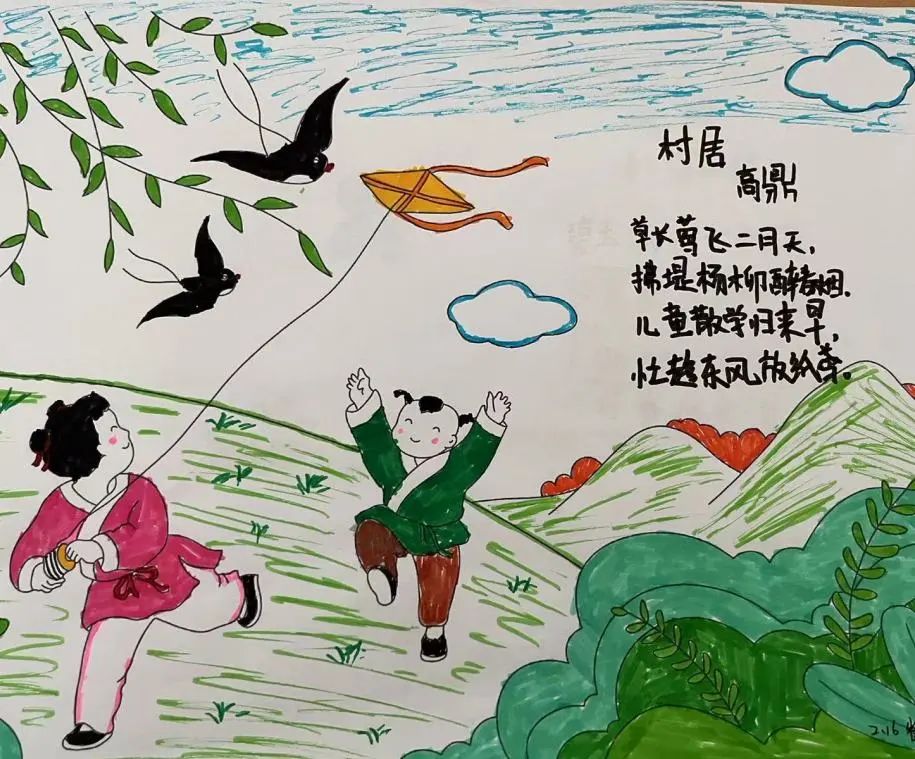 村居
高鼎
草长莺飞二月天,
拂堤杨柳醉春烟.
儿童散学归来早,
忙趁东风放纸鸢。
2.16